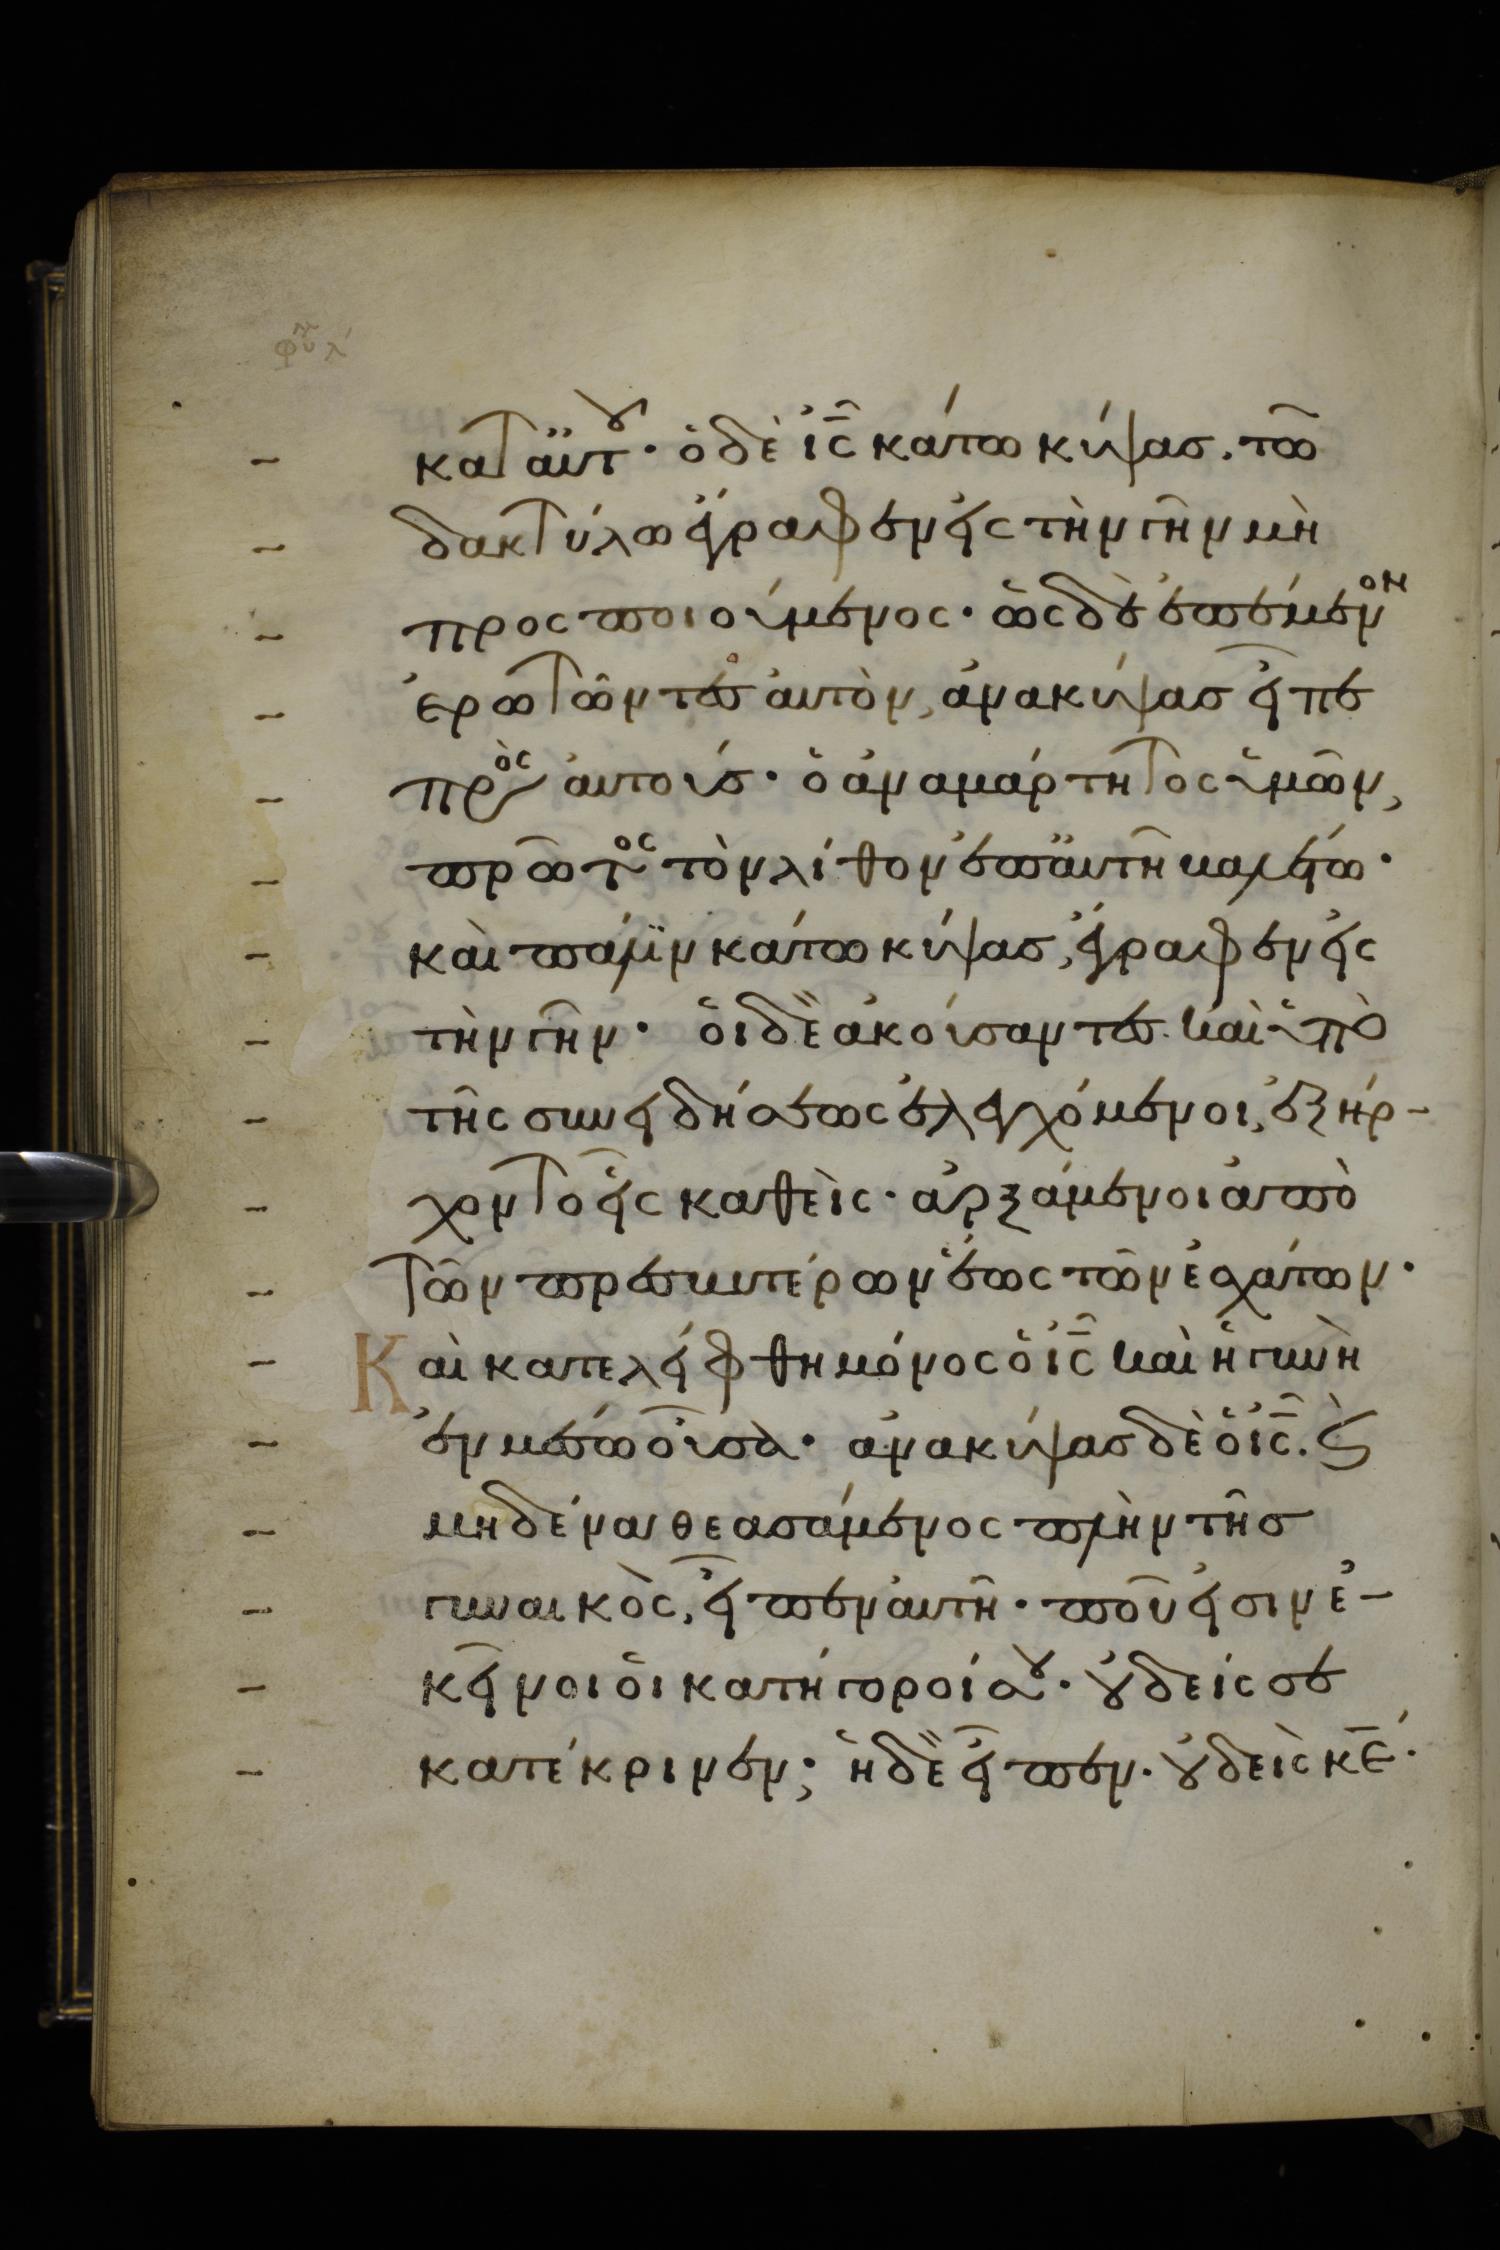 κατ αὐτοῦ· ὁ δὲ ις̅ κάτω κύψας. τῶ
δακτύλω ἔγραφεν εἰς τὴν γῆν μὴ
προσποιούμενος· ὡς δὲ ἐπέμενον
ἐρωτῶντες αὐτὸν, ἀνακύψας εἶπε
πρὸς αὐτούς· ὁ ἀναμάρτητος ὑμῶν,
πρῶτος τὸν λίθον ἐπ αὐτῆ βαλέτω·
καὶ πάλιν κάτω κύψας, ἔγραφεν εἰς
τὴν γῆν· οἱ δὲ ἀκούσαντες. καὶ ὑπὸ
τῆς συνειδήσεως ἐλεγχόμενοι, ἐξήρ-
χοντο εἷς καθεὶς· ἀρξάμενοι ἀπὸ
τῶν πρεσβυτέρων ἕως τῶν ἐσχάτων·
Καὶ κατελείφθη μόνος ὁ ις̅ καὶ ἡ γυνὴ
ἐν μέσω οὖσα· ἀνακύψας δὲ ὁ ις̅. ϗ
μηδένα θεασάμενος πλὴν τῆς
γυναικὸς, εἶπεν αὐτῆ· ποῦ εἰσιν ἐ-
κεῖνοι οἱ κατήγοροί σου· οὐδείς σε
κατέκρινεν; ἡ δὲ εἶπεν. οὐδεὶς κ̅ε̅·